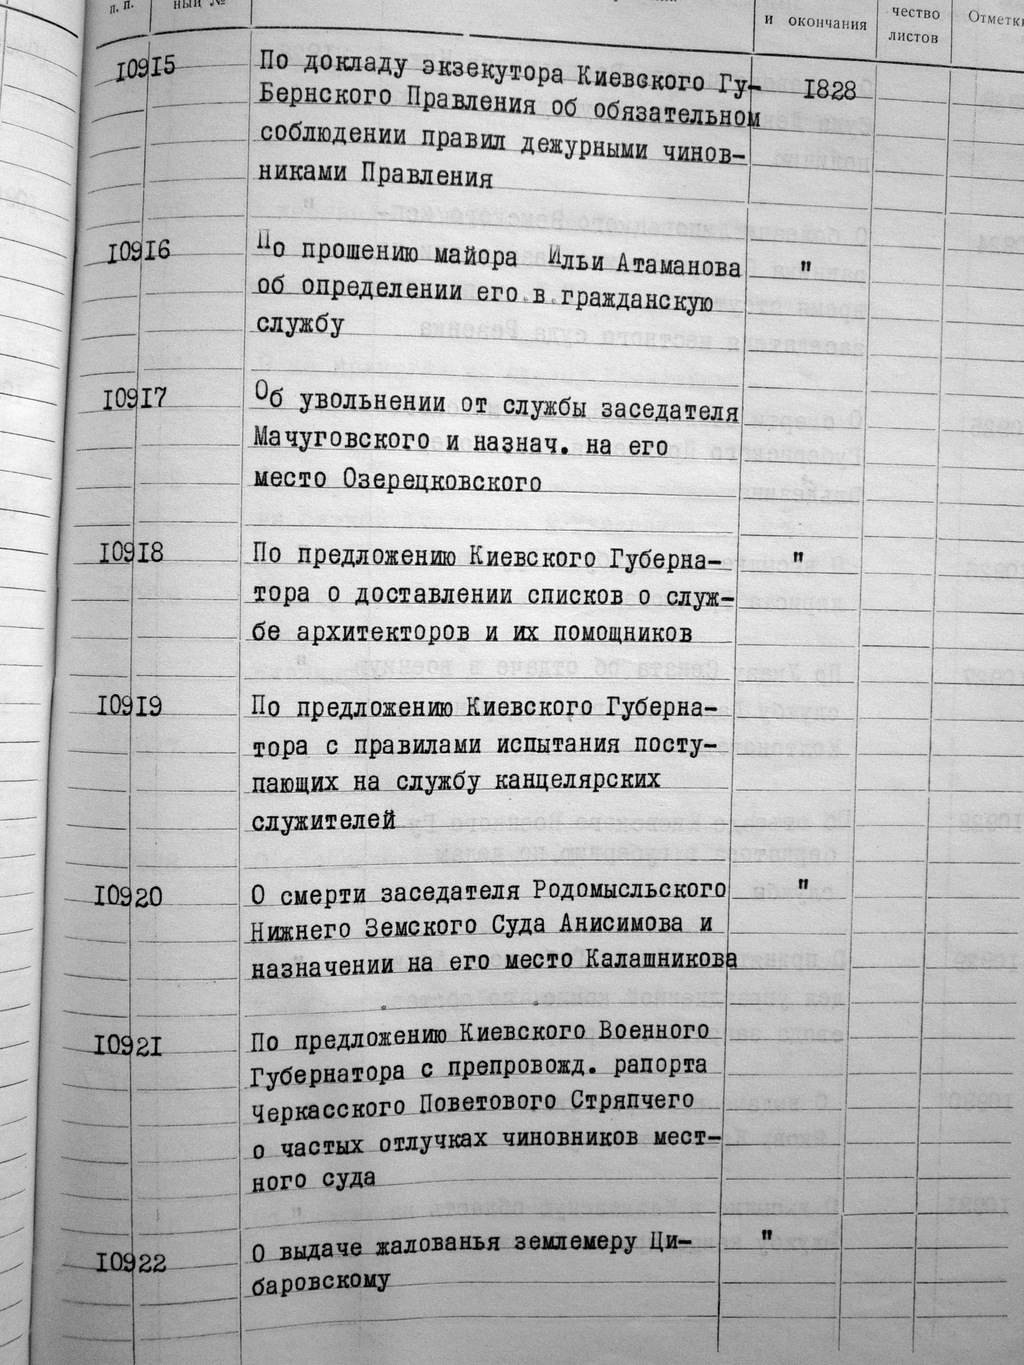 п. п.
ный №
и окончания
чество
листов
Отметки
10915 По докладу экзекутора Киевского Гу- 1828
Бернского Правления об обязательном
соблюдении правил дежурными чинов-
никами Правления
10916 По прошению майора Ильи Атаманова "
об определении его в гражданскую
службу
10917 Об увольнении от службы заседателя
Мачуговского и назнач. на его
место Озерецковского
10918 По предложению Киевского Губерна- "
тора о доставлении списков о служ-
бе архитекторов и их помощников
10919 По предложению Киевского Губерна-
тора с правилами испытания посту-
пающих на службу канцелярских
служителей
10920 О смерти заседателя Родомысльского "
Нижнего Земского Суда Анисимова и
назначении на его место Калашникова
10921 По предложению Киевского Военного
Губернатора с препровожд. рапорта
Черкасского Поветового Стряпчего
о частых отлучках чиновников мест-
ного суда
10922 О выдаче жалованья землемеру Ци- "
баровскому